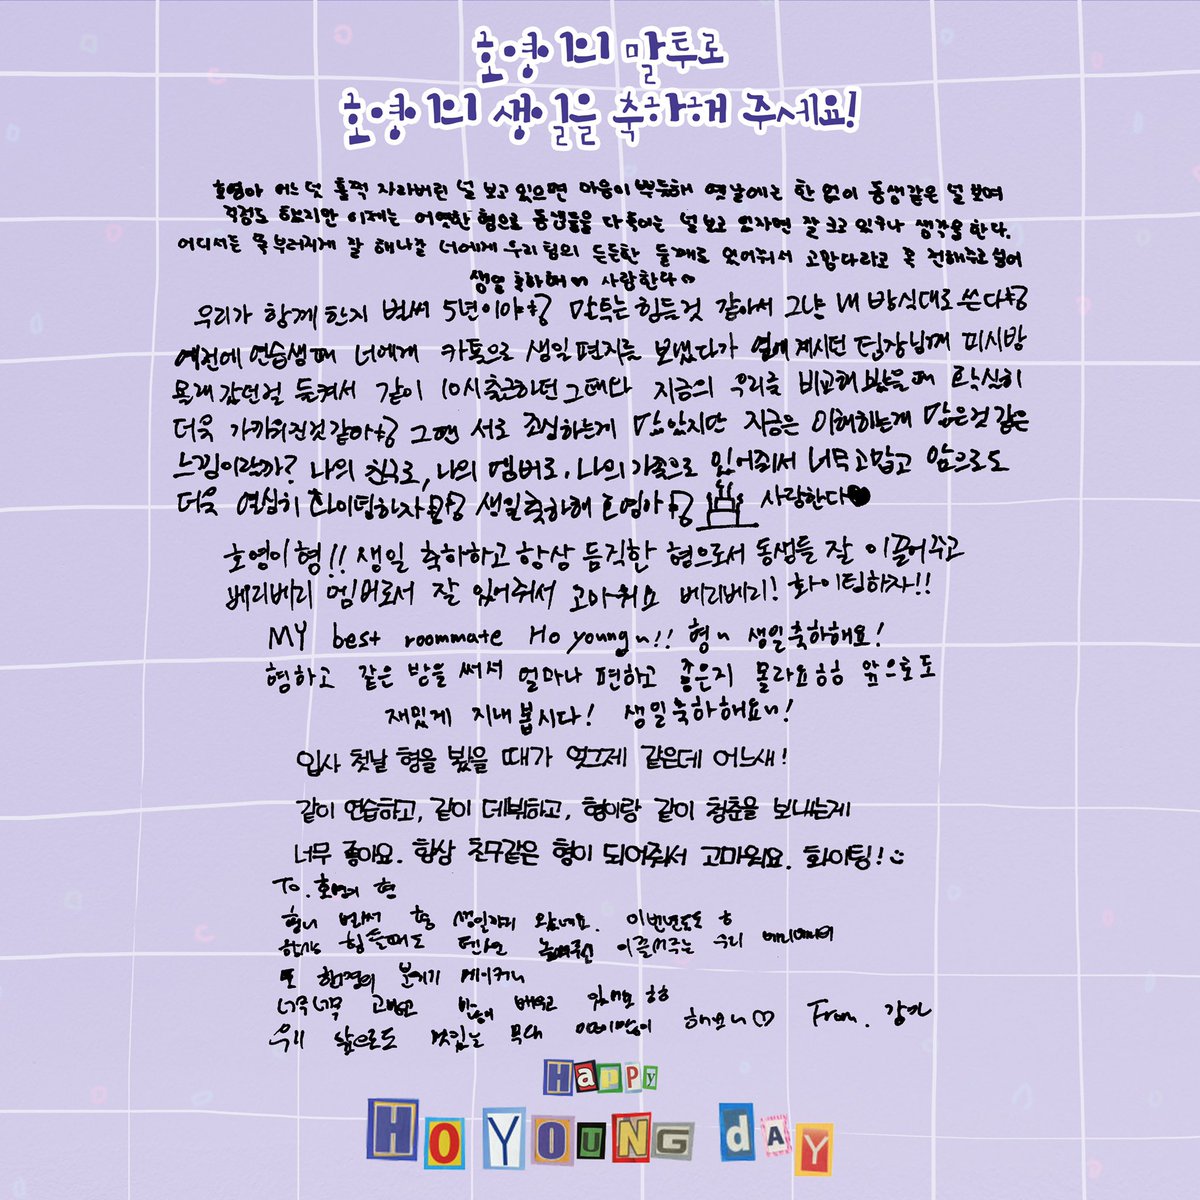 호영이의 말투로
호영이의 생일을 축하해 주세요!
호영아 어느덧 훌쩍 자라버린 널 보고 있으면 마음이 뿌듯해 옛날에는 한 없이 동생같은 널 보며
걱정도 했지만 이제는 어엿한 형으로 동생들을 다 보고 있자면 잘 크고 있구나 생각을 한다.
어디서든 똑부러지게 잘 해나갈 너에게 우리팀의 든든한 둘째로 있어줘서 고맙다라고 꼭 전해주고 싶어
생일 축하해 사랑한다
우리가 함께 한지 벌써 5년이야 말투는 힘든것 같아서 그냥 내 방식대로 쓴다
예전에 연습생때 너에게 카톡으로 생일편지를 보냈다가 옆에 계시던 팀장님께 피시방
몰래 갔던걸 들켜서 같이 10시 출근하던 그때와 지금의 우리를 비교해 봤을때 확실히
더욱 가까워진것같아 그땐 서로 조심하는게 많았지만 지금은 이해하는게 많은것 같은
느낌이랄까? 나의 친구로, 나의 멤버로, 나의 가족으로 있어줘서 너무 고맙고 앞으로도
더욱 열심히 화이팅하자 생일축하해 호영아 사랑한다♥
호영이형!! 생일 축하하고 항상 듬직한 형으로서 동생들 잘 이끌어주고
베리베리 멤버로서 잘 있어줘서 고마워요 베리베리! 화이팅하자!!
MY best roommate Ho young~!! 형~ 생일축하해요!
형하고 같은 방을 써서 얼마나 편하고 좋은지 몰라요ㅎㅎ 앞으로도
재밌게 지내봅시다! 생일축하해요~!
입사 첫날 형을 봤을 때가 엊그제 같은데 어느새!
같이 연습하고, 같이 데뷔하고, 형이랑 같이 청춘을 보내는게
너무 좋아요. 항상 친구같은 형이 되어줘서 고마워요. 화이팅!
To. 호영이 형
형~ 벌써 형 생일이 왔네요. 이번년도도
항상 힘들때도 텐션 높여주신 이끌어주는 우리 베리베리의
또 함정의 분위기 메이커~
너무너무 고맙고 많이 배우고 있어요 ㅎㅎ
우리 앞으로도 멋있는 무대 많이많이 해봐요~♡ From. 강민
Happy
HOYOUNG dAY